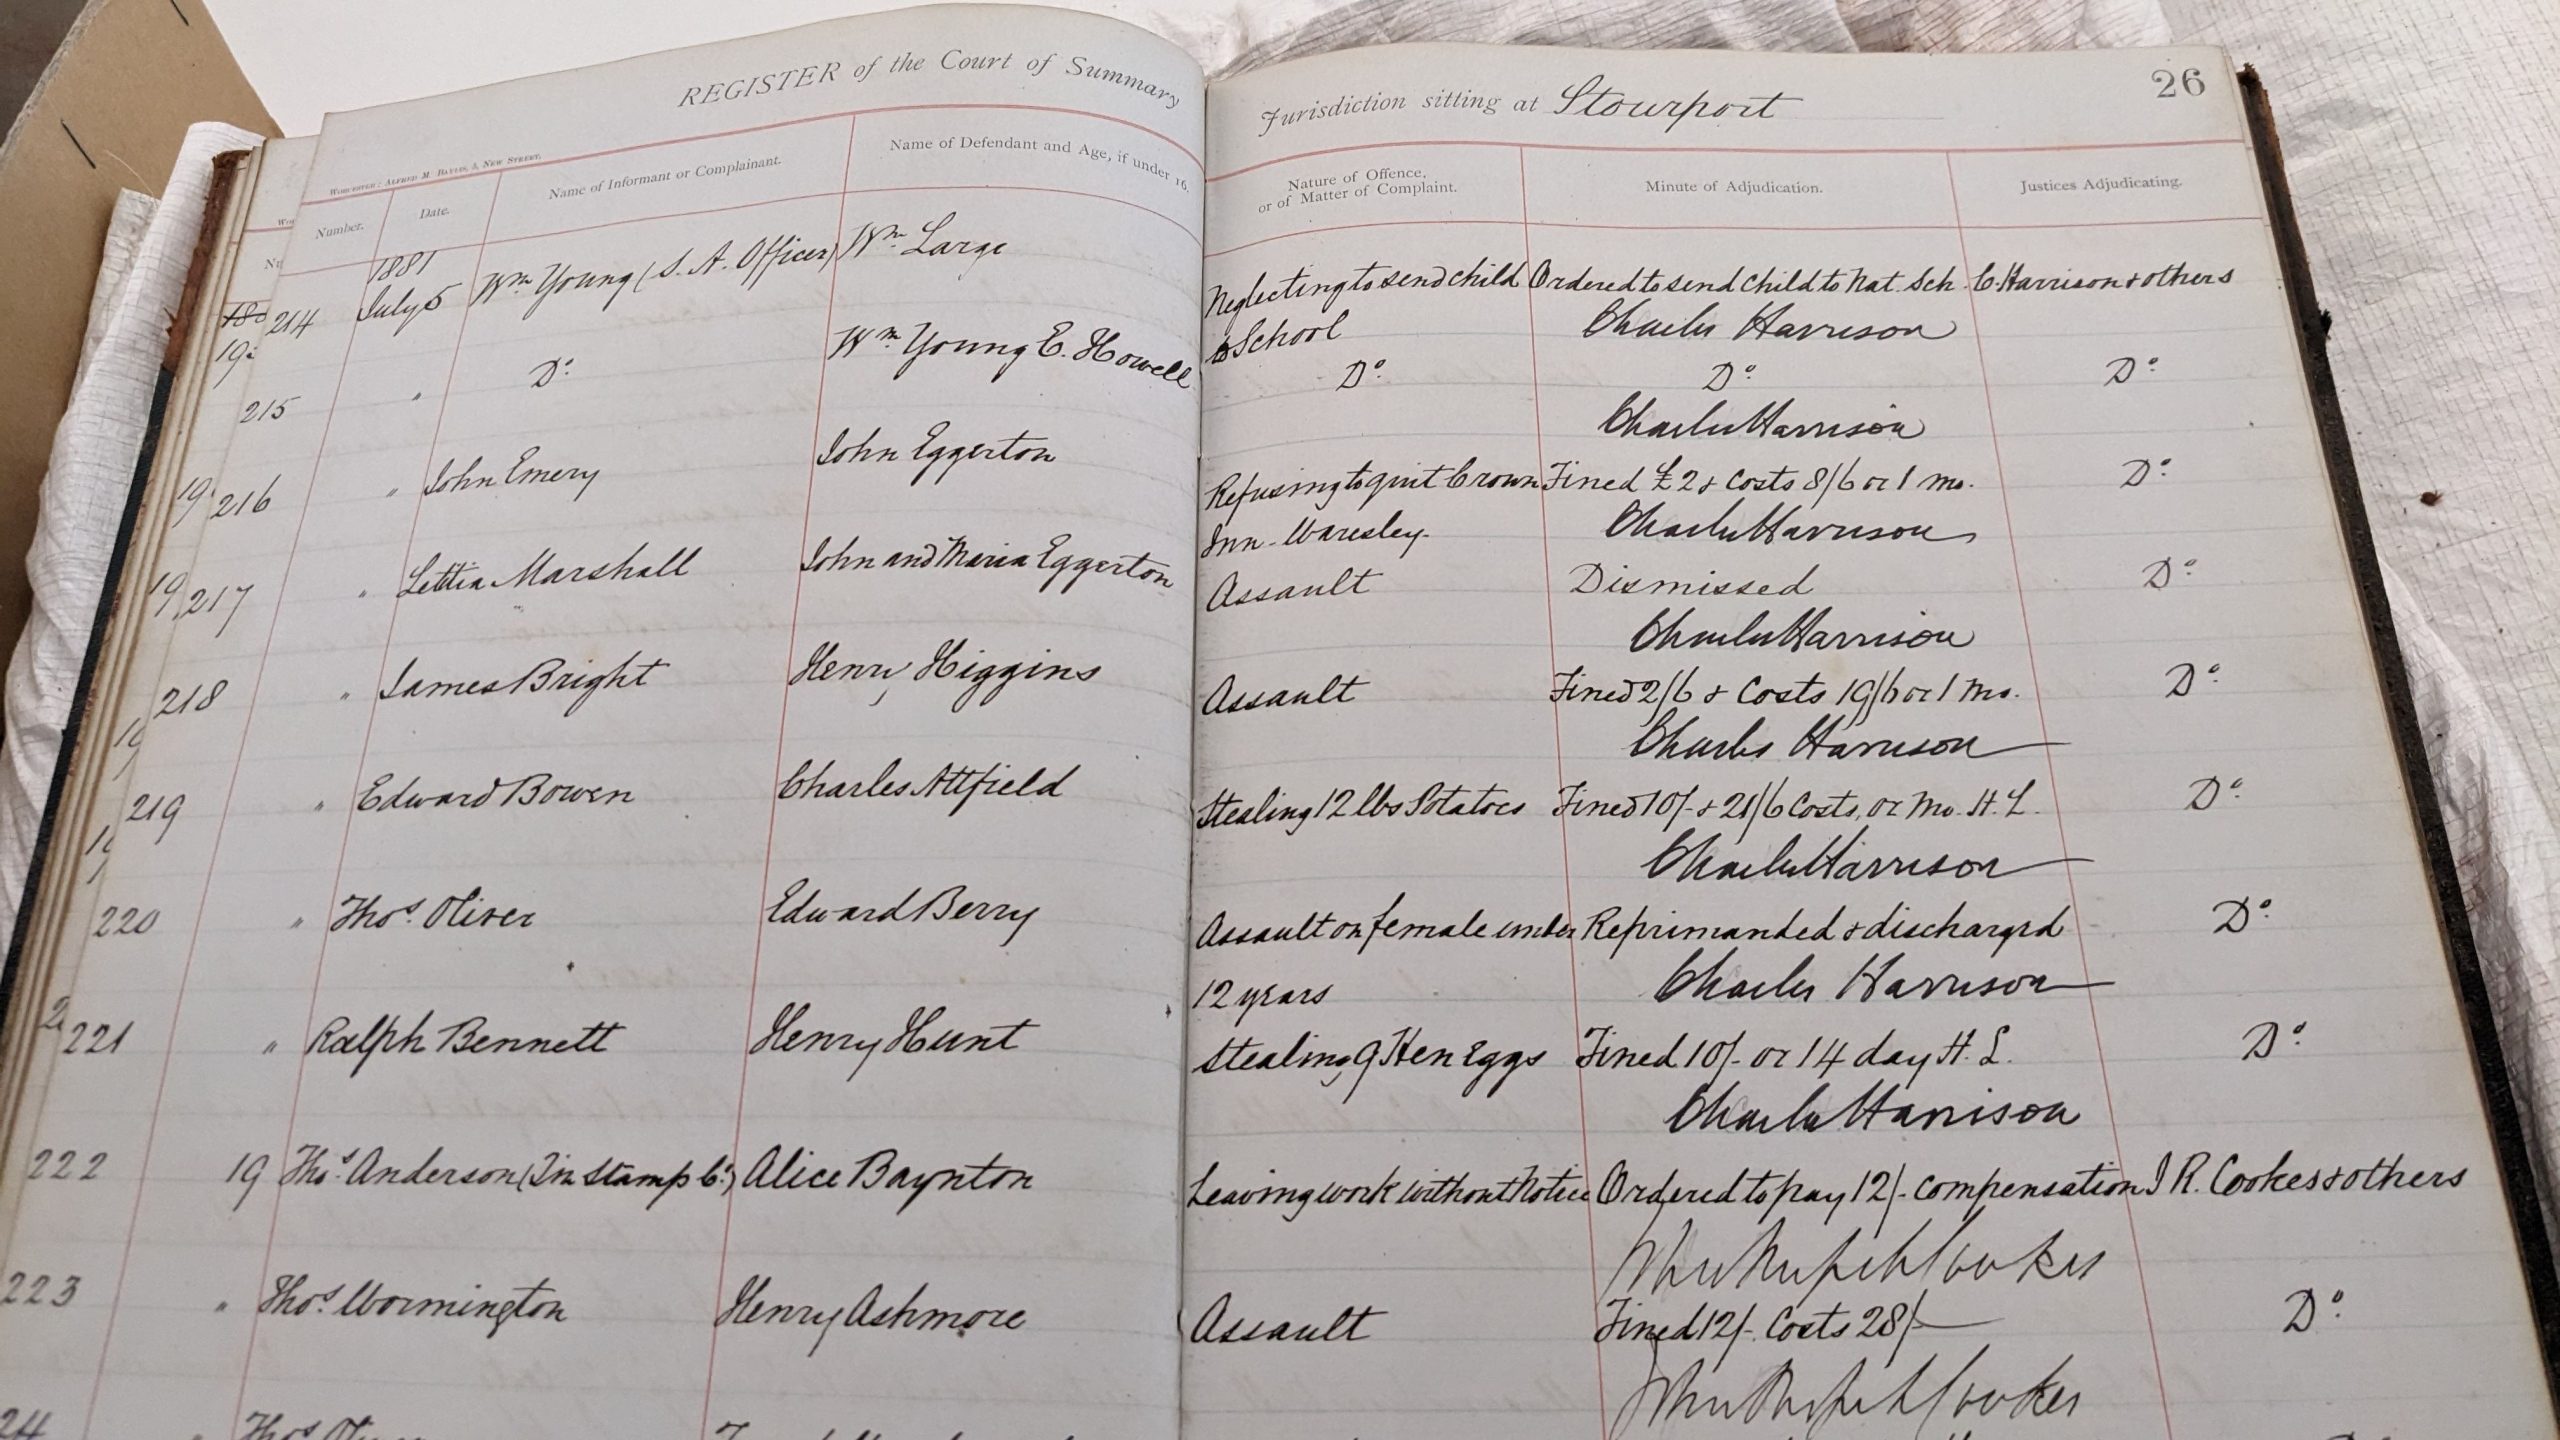 REGISTER of the Court of Summary Jurisdiction sitting at Stourport 26
WORCESTER: ALFRED M. BAYLIS, 5, NEW STREET.
Number. Date. Name of Informant or Complainant. Name of Defendant and Age, if under 16. Nature of Offence, or of Matter of Complaint. Minute of Adjudication. Justices Adjudicating.
1881
214 July 5 Wm Young (S. A. Officer) Wm Large Neglecting to send child Ordered to send child to Nat. Sch. C. Harrison & others
to School Charles Harrison
215 " Do. Wm Young E. Howell Do. Do. Do.
Charles Harrison
216 " John Emery John Eggerton Refusing to quit Crown Fined £2 & costs 8/6 or 1 mo. Do.
Inn - Waresley - Charles Harrison
217 " Lettia Marshall John and Maria Eggerton Assault Dismissed Do.
Charles Harrison
218 " James Bright Henry Higgins Assault Fined 2/6 & Costs 19/6 or 1 Mo. Do.
Charles Harrison
219 " Edward Bowen Charles Attfield Stealing 12 lbs Potatoes Fined 10/- & 21/6 Costs, or Mo. H. L. Do.
Charles Harrison
220 " Thos. Oliver Edward Berry Assault on female under Reprimanded & discharged Do.
12 years Charles Harrison
221 " Ralph Bennett Henry Hunt Stealing 9 Hen Eggs Fined 10/- or 14 day H. L. Do.
Charles Harrison
222 19 Thos. Anderson (Tin Stamp Co.) Alice Baynton Leaving work without Notice Ordered to pay 12/- compensation J R. Cookes & others
Cookes
223 " Thos. Wormington Henry Ashmore Assault Fined 12/- Costs 28/- Do.
Cookes
24 Thos